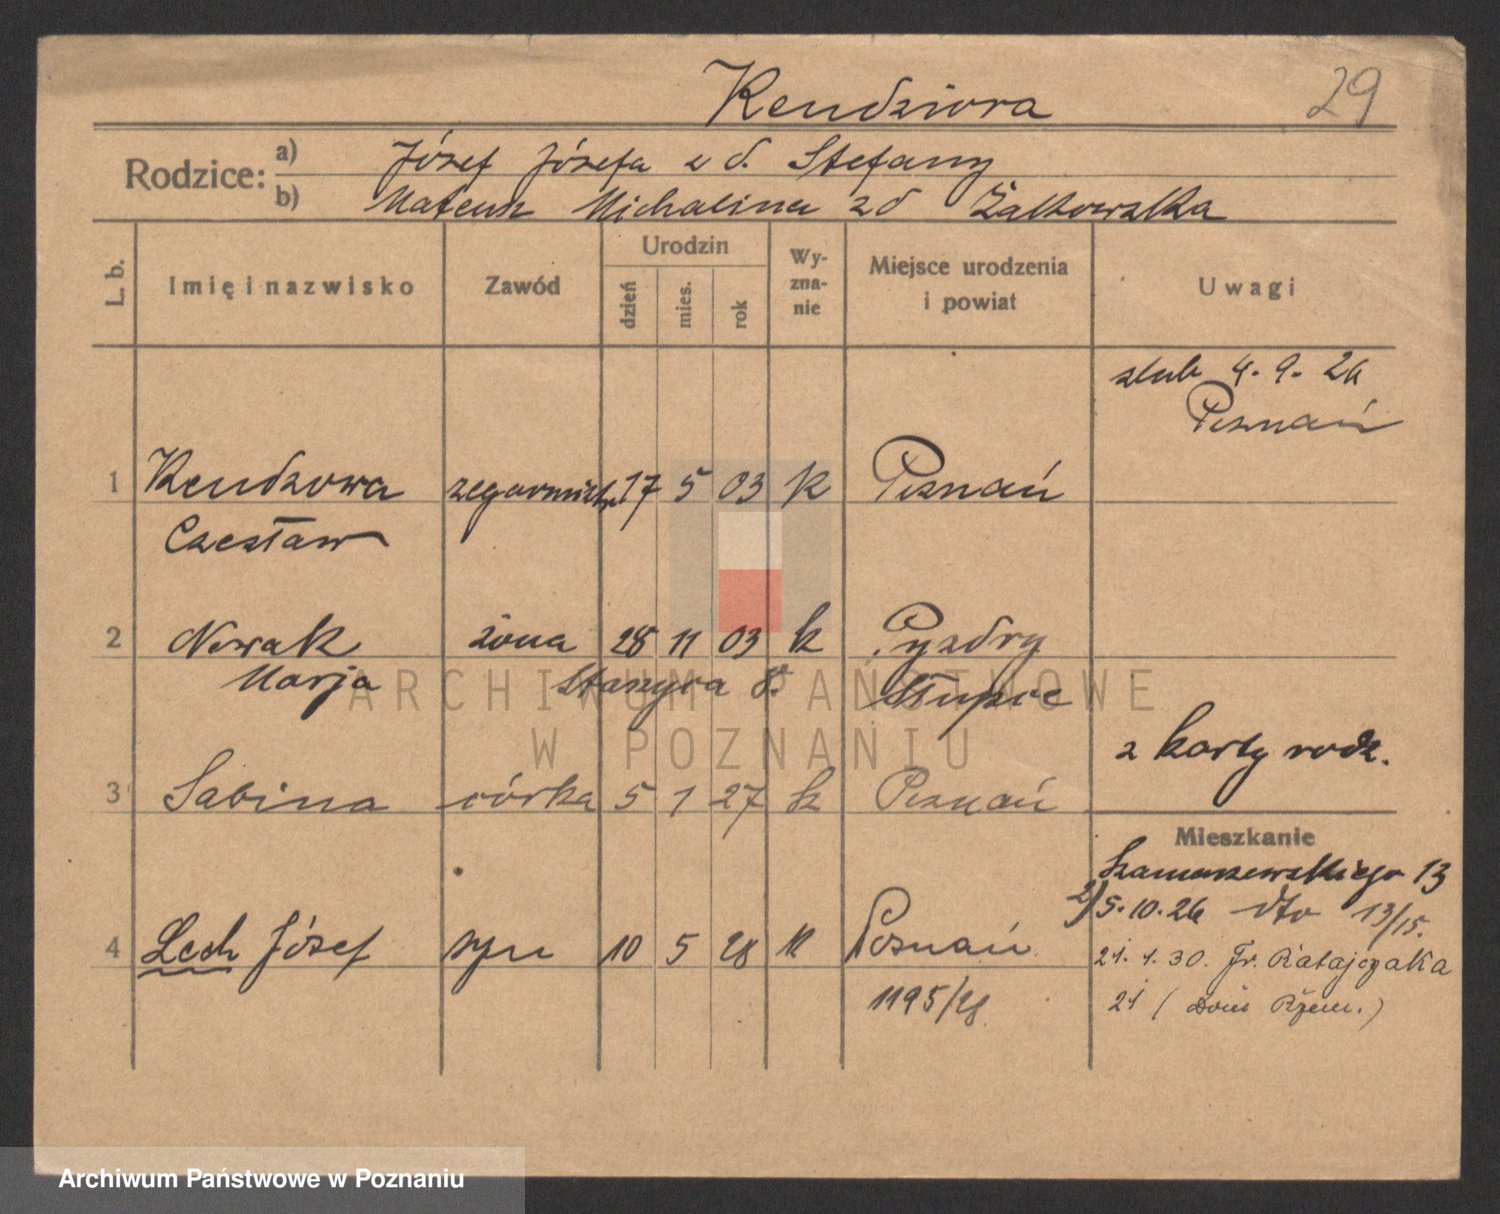 Kendziora
29
Rodzice:
a) Józef Józefa z d. Stefany
b) Mateusz Michalina zd Żalkowska
L. b.
Imię i nazwisko
Zawód
Urodzin
dzień
mies.
rok
Wy-
zna-
nie
Miejsce urodzenia
i powiat
Uwagi
ślub 4. 9. 26
Poznań
1 Kendziora zegarmistrz 17 5 03 k Poznań
Czesław
2 Nowak żona 28 11 03 k Pyzdry
Marja 8. Słupce
z karty rodz.
3 Sabina córka 5 1 27 k Poznań
Mieszkanie
Szamarzewskiego 13
2) 5.10.26 dto 13/15.
4 Lech Józef syn 10 5 28 k Poznań
21. 1. 30. Fr. Ratajczaka
1195/28
21 (Dom Rzem.)
ARCHIWUM PAŃSTWOWE
W POZNANIU
Archiwum Państwowe w Poznaniu